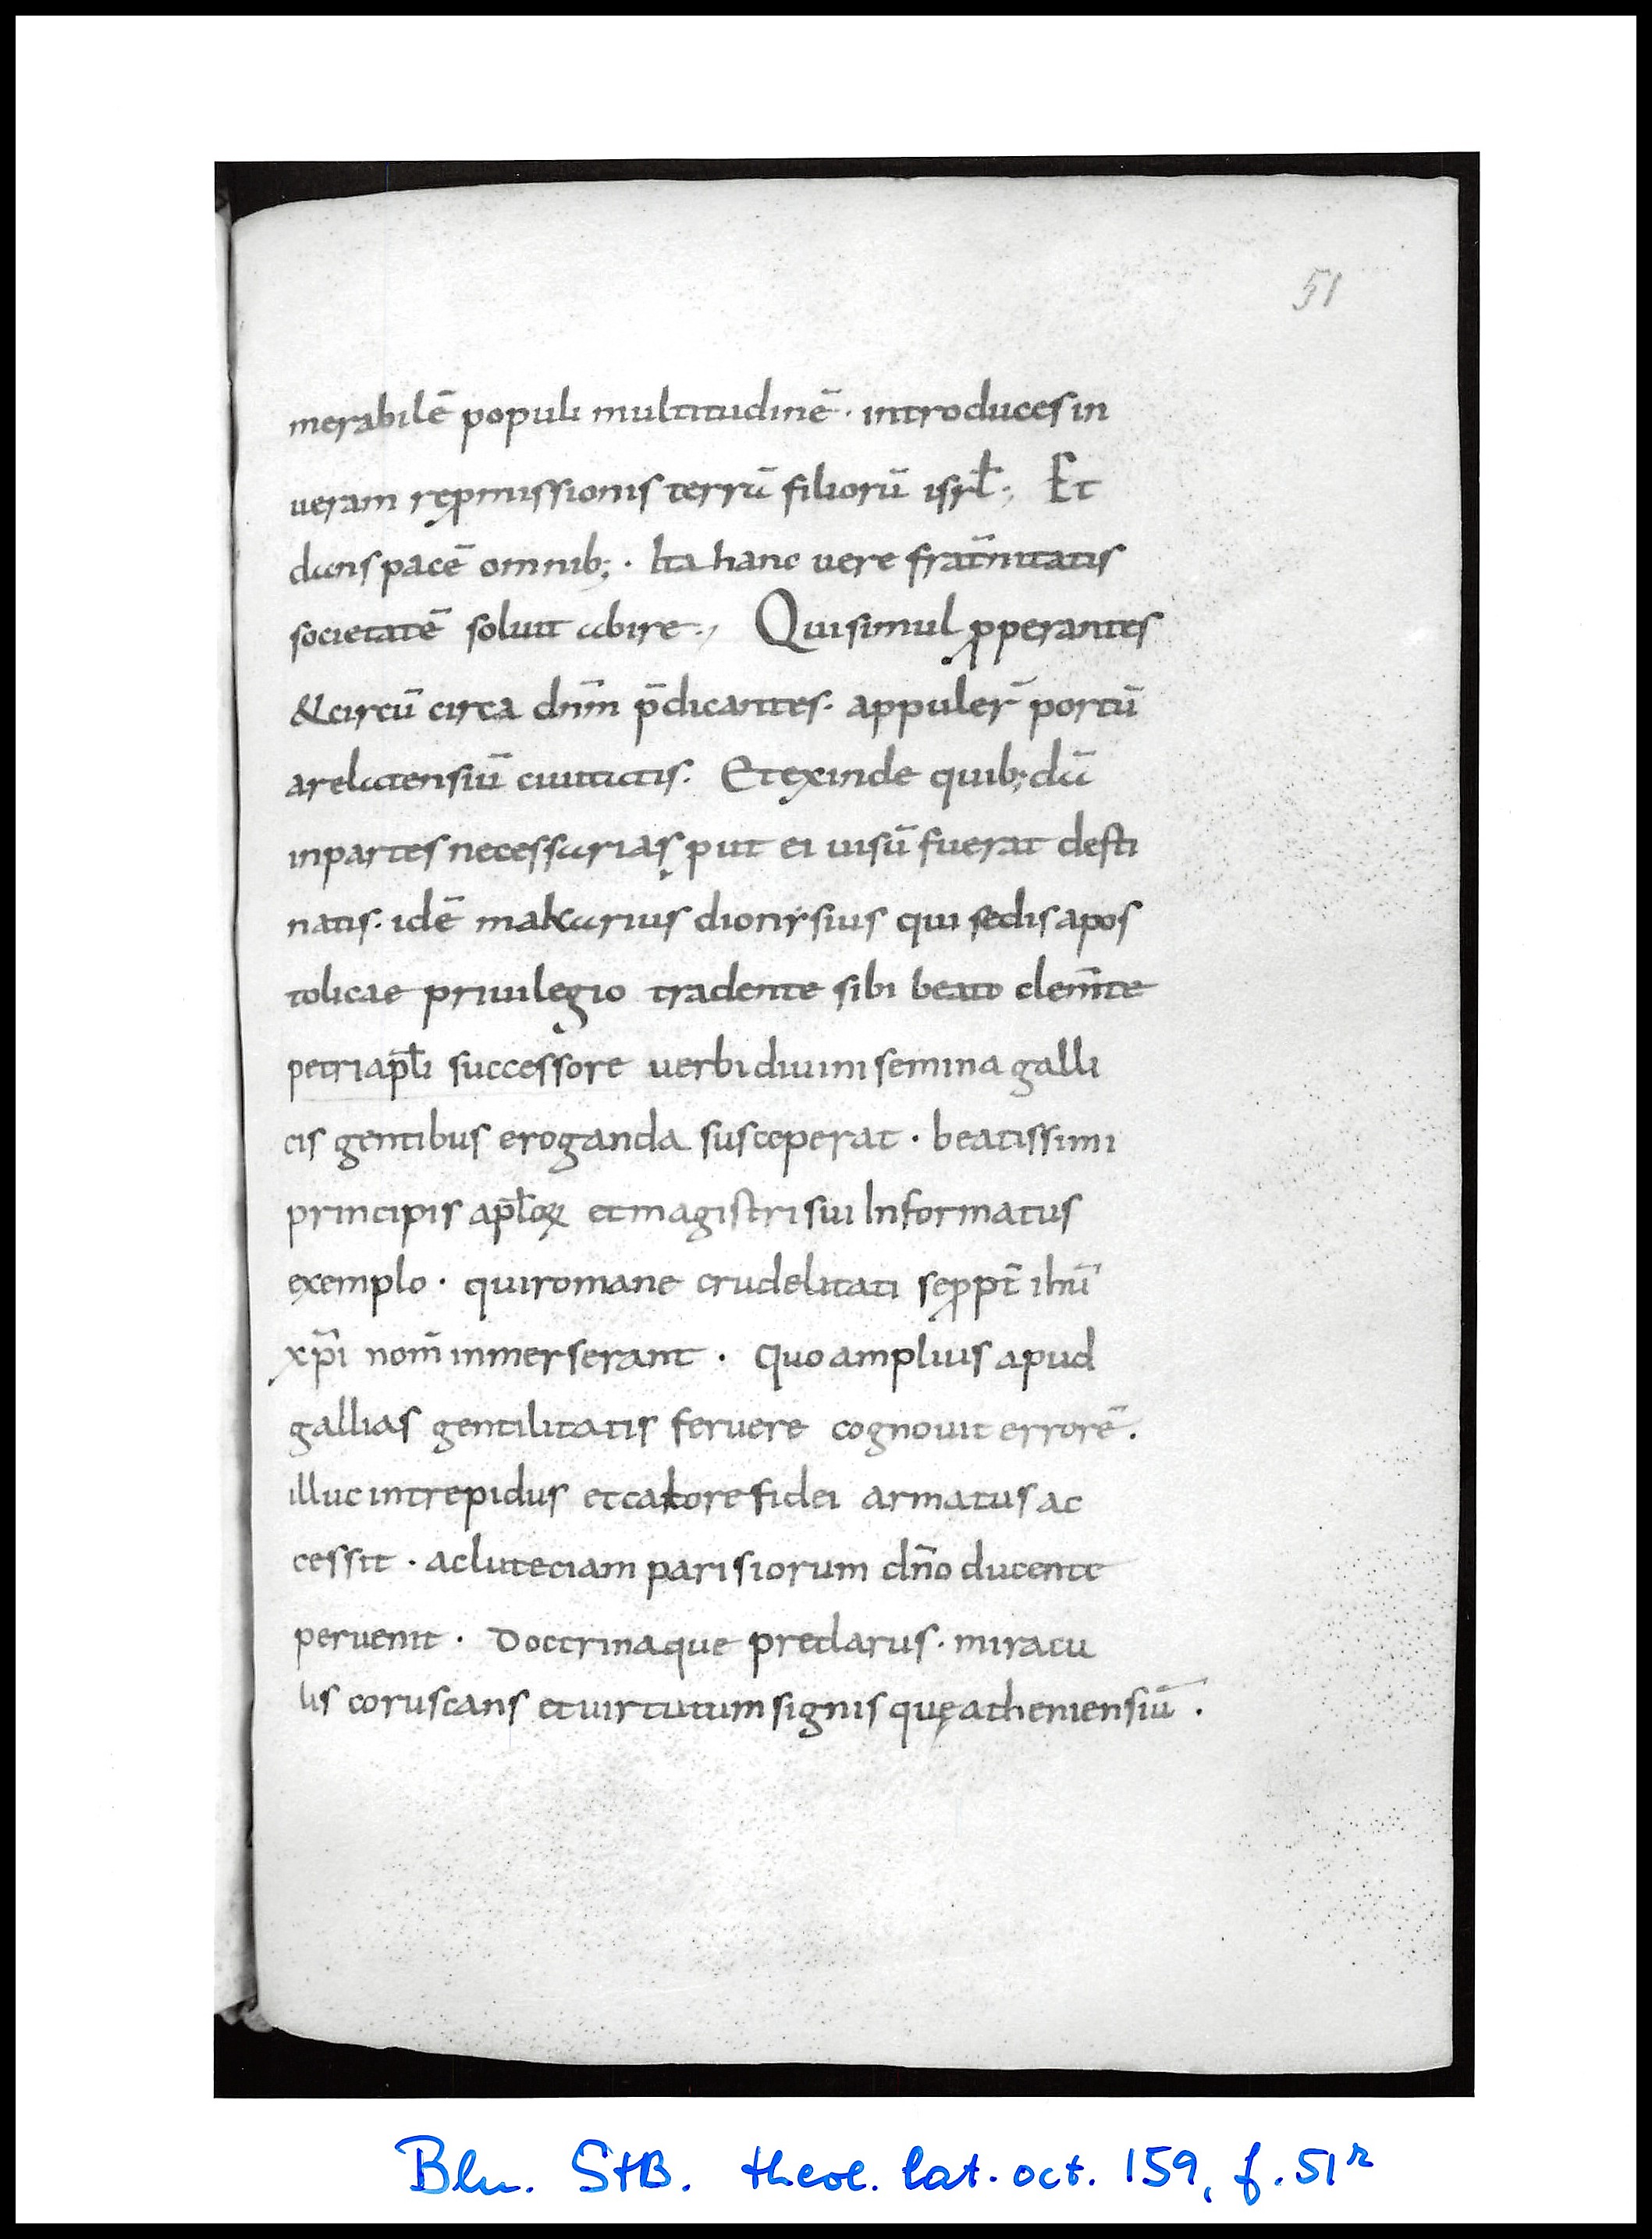 51
merabilē populi multitudinē · introduces in
ueram reꝓmissionis terrā filiorū isrł ·, Et
dans pacē omnib; · Ita hanc uere frat̄nitatis
societatē soluit abire ·, Qui simul ꝓperantes
& circū circa dn̄m p̄dicantes · appuler̄ portū
arelatensiū ciuitatis · Et exinde quib;dā
in partes necessarias ꝓut ei uisū fuerat desti
natis · idē makarius dionisius qui sedis apos
tolicae priuilegio tradente sibi beato clem̄te
petri apłi successore uerbi diuini semina galli
cis gentibus eroganda susceperat · beatissimi
principis apłoꝝ et magistri sui Informatus
exemplo · qui romane crudelitati se ꝓpt̄ ihū
xp̄i nom̄ inmerserant · quo amplius apud
gallias gentilitatis feruere cognouit errorē ·
illuc intrepidus et calore fidei armatus ac
cessit · ac luteciam parisiorum dn̄o ducente
peruenit · Doctrinaque preclarus · miracu
lis coruscans et uirtutum signis quę atheniensiū ·
Bln. StB. theol. lat. oct. 159, f. 51r